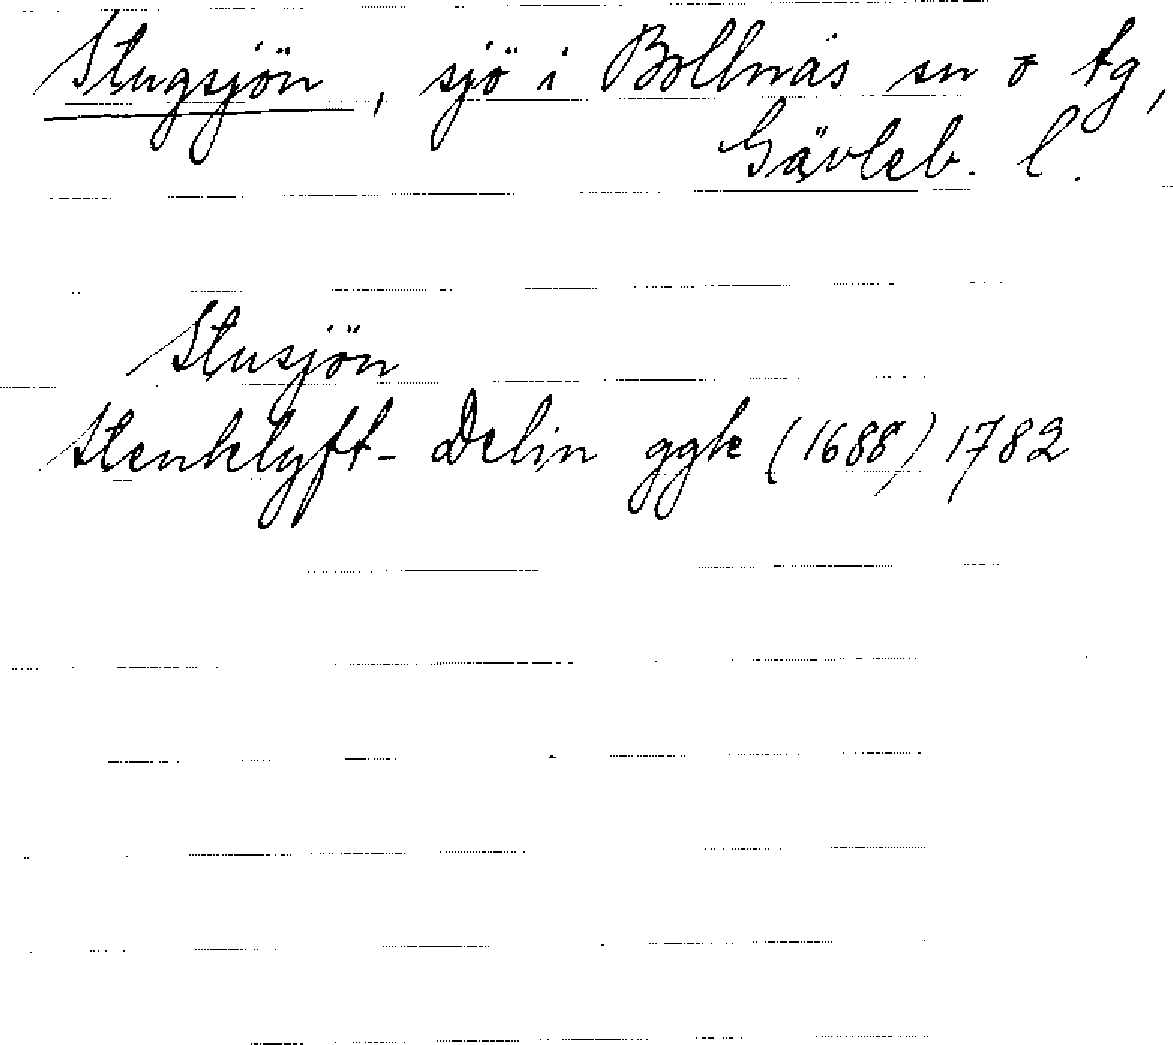 Stugsjön, sjö i Bollnäs sn o tg,
Gävleb. l.
Stusjön
Stenklyft- Delin ggk (1688) 1782